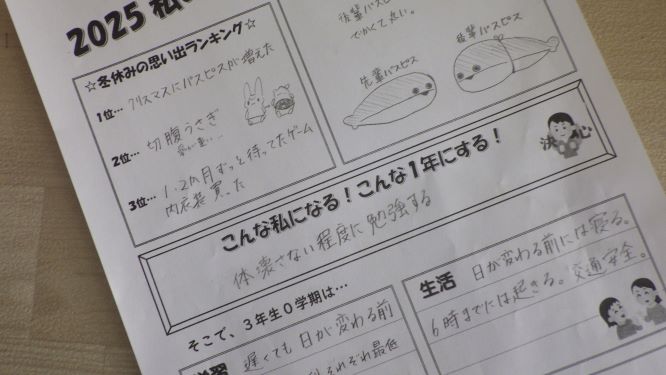 2025 私
☆冬休みの思い出ランキング☆
1位… クリスマスにバスピスが増えた
2位… 切腹うさぎ
3位… 1、2か月ずっと待ってたゲーム
内衣装買った
後輩バスピス
でかくて丸い。
先輩バスピス
後輩バスピス
決心
こんな私になる!こんな1年にする!
体壊さない程度に勉強する
そこで、3年生0学期は…
学習 遅くても日が変わる前
それぞれ最低
生活 日が変わる前には寝る。
6時までには起きる。交通安全。